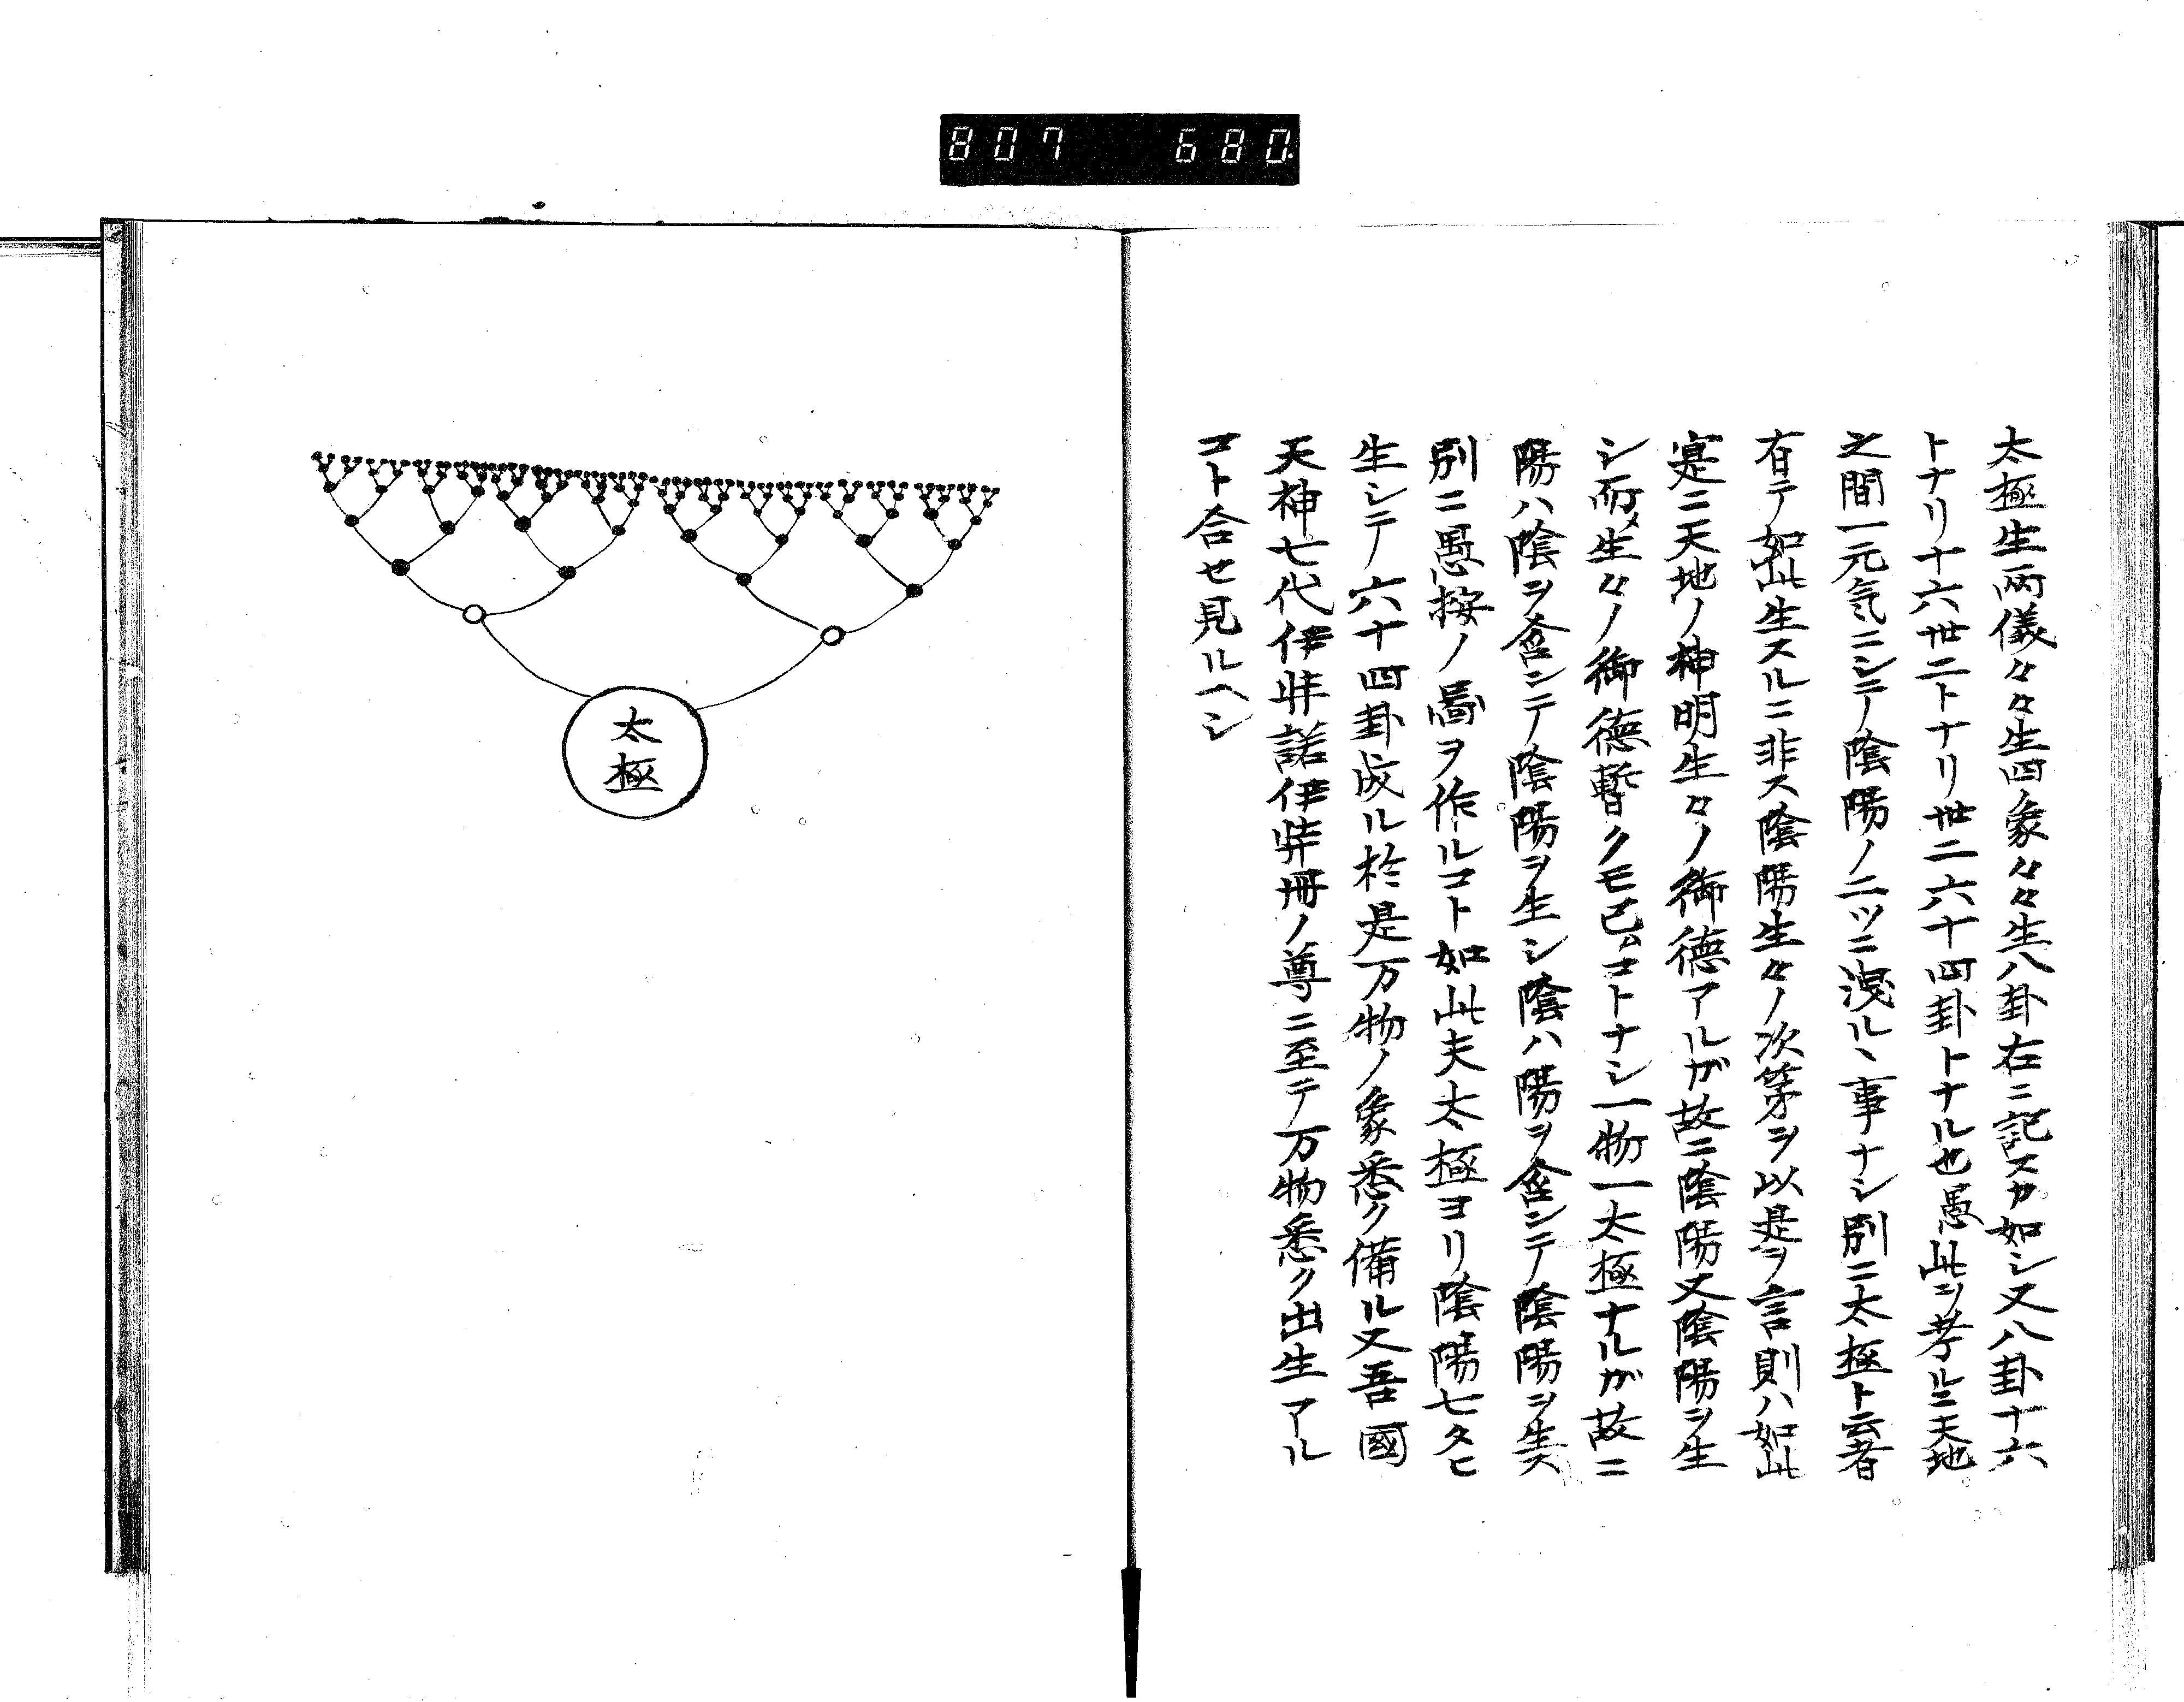 807 680.
太極生両儀々々生四象々々生八卦右ニ記スカ如シ又八卦十六
トナリ十六卅二トナリ卅二六十四卦トナル也愚此ヲ考ルニ天地
之間一元気ニシテ陰陽ノ二ツニ洩ルヽ事ナシ別ニ太極ト云者
有テ如此生スルニ非ス陰陽生々ノ次第ヲ以是ヲ言則ハ如此
寔ニ天地ノ神明生々ノ御徳アルガ故ニ陰陽又陰陽ヲ生
シ而〆生々ノ御徳暫クモ已ムコトナシ一物一太極ナルガ故ニ
陽ハ陰ヲ含シテ陰陽ヲ生シ陰ハ陽ヲ含シテ陰陽ヲ生ス
別ニ愚按ノ啚ヲ作ルコト如此夫太極ヨリ陰陽七タヒ
生シテ六十四卦成ル於是万物ノ象悉ク備ル又吾國
天神七代伊弉諾伊弉冊ノ尊ニ至テ万物悉ク出生アル
コト合セ見ルヘシ
太極